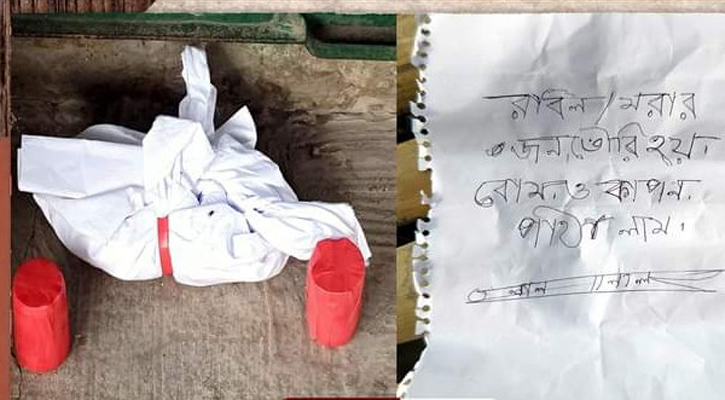 রাবিল / মরার
জন্য তৈরি হয়।
বোম ও কাপন
পাঠা লাম।
লাল